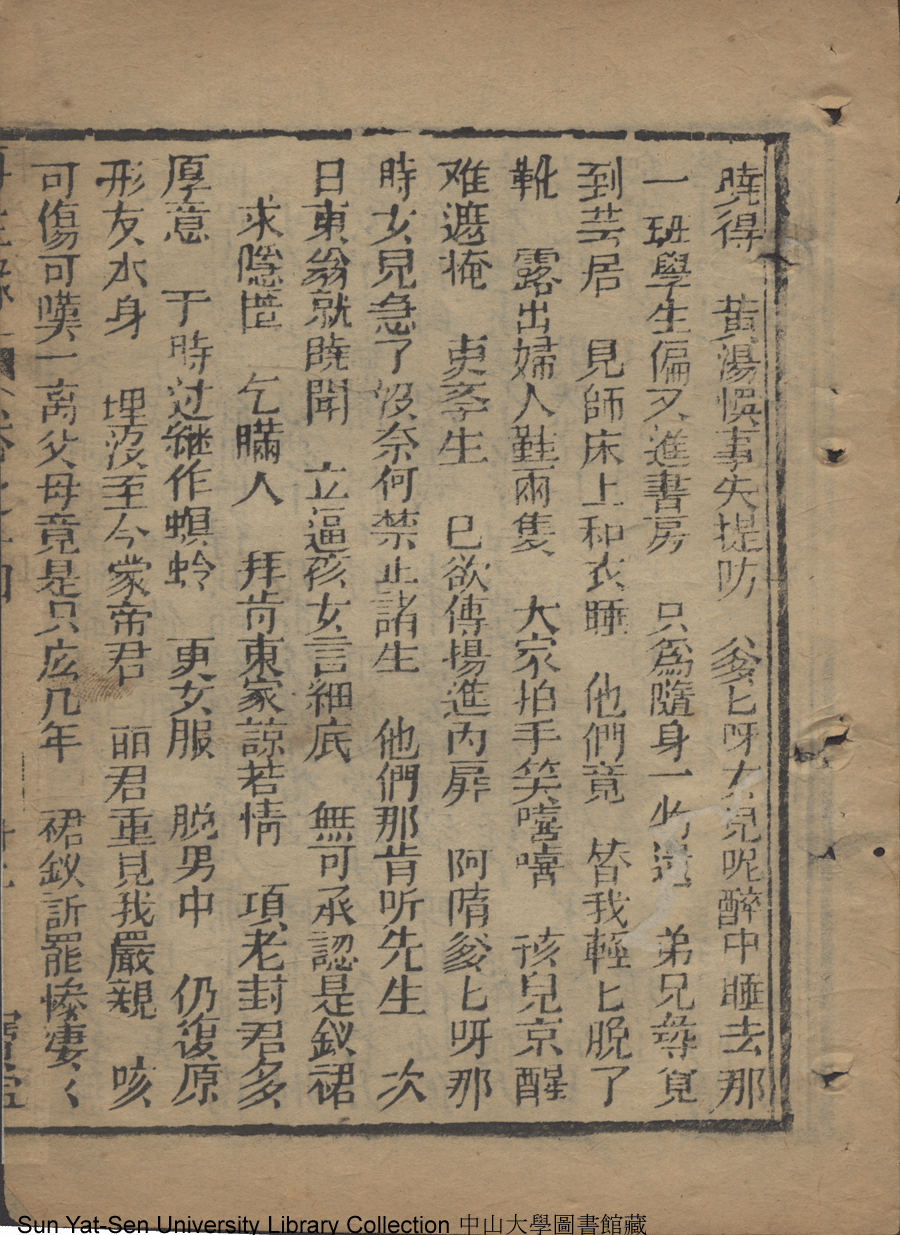 曉得　黃湯悞事失提防　爹匕呀女兒呢醉中睡去那
一班學生偏又進書房　只爲隨身一物遺　弟兄尋覓
到芸居　見師床上和衣睡　他們竟　替我輕匕脫了
靴　露出婦人鞋兩隻　大家拍手笑嘻嘻　孩兒京醒
难遮掩　更斈生　已欲傳揚進內屝　阿唷爹匕呀那
時女兒急了沒奈何禁止諸生　他們那肯听先生　次
日東翁就曉聞　立逼孩女言細底　無可承認是釵裙
求隱匿　乞瞞人　拜肯東家諒若情　項老封君多
厚意　于時过継作螟蛉　更女服　脫男巾　仍復原
形友本身　埋沒至今蒙帝君　丽君重見我嚴親　咳
可傷可嘆一离父母竟是只広几年　裙釵訴罷慘凄く
Sun Yat-Sen University Library Collection 中山大學圖書館藏